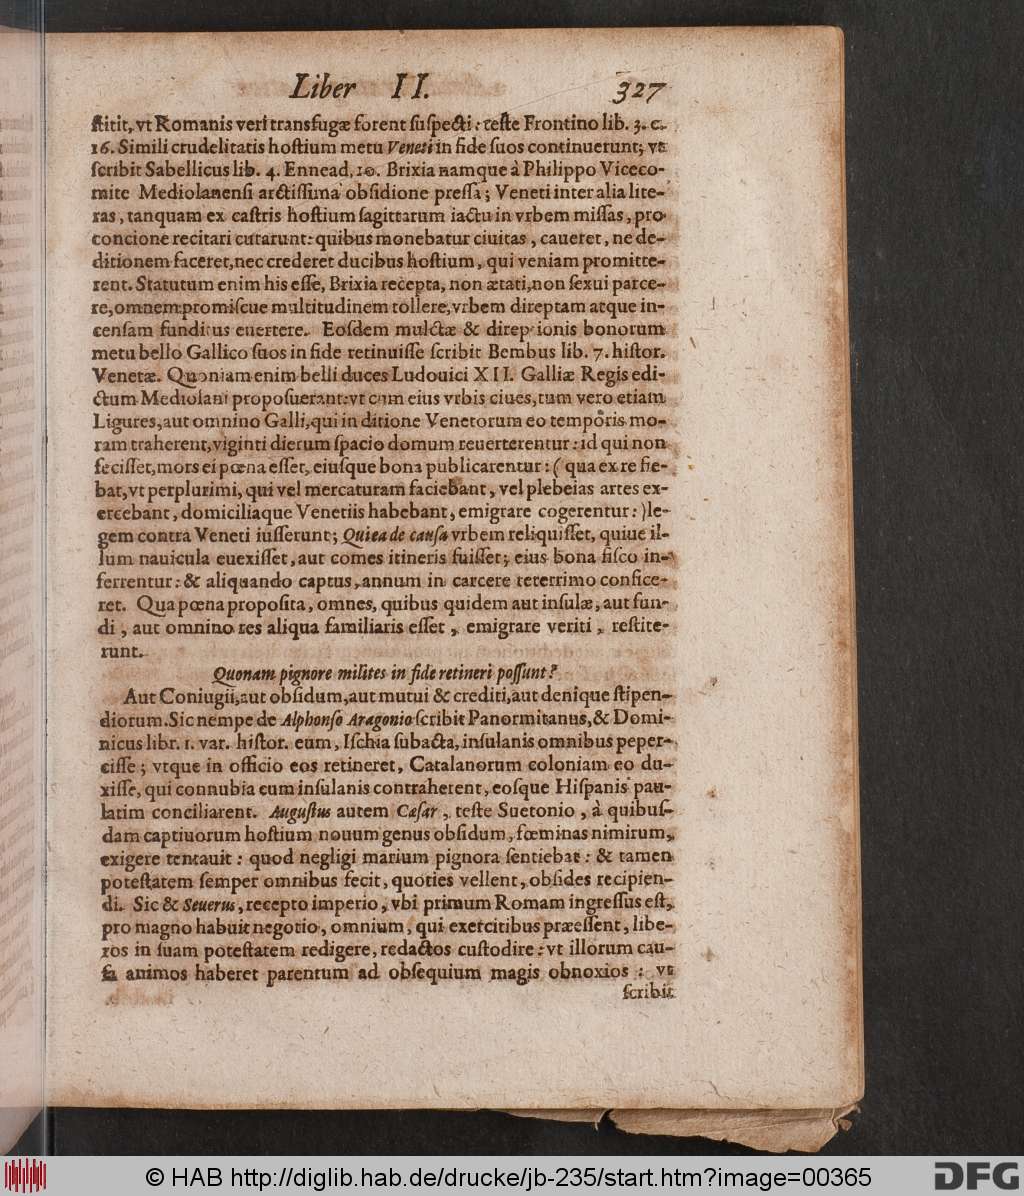 Liber II. 327
ſtitit, vt Romanis veri transfugæ forent ſuſpecti: teſte Frontino lib. 3. c.
16. Simili crudelitatis hoſtium metu Veneti in fide ſuos continuerunt; vt
ſcribit Sabellicus lib. 4. Ennead. 10. Brixia namque à Philippo Viceco-
mite Mediolanenſi arctiſſima obſidione preſſa; Veneti inter alia lite-
ras, tanquam ex caſtris hoſtium ſagittarum iactu in vrbem miſſas, pro
concione recitari curarunt: quibus monebatur ciuitas, caueret, ne de-
ditionem faceret, nec crederet ducibus hoſtium, qui veniam promitte-
rent. Statutum enim his eſſe, Brixia recepta, non ætati, non ſexui parce-
re, omnem promiſcue multitudinem tollere, vrbem direptam atque in-
cenſam funditus euertere. Eoſdem mulctæ & direptionis bonorum
metu bello Gallico ſuos in fide retinuiſſe ſcribit Bembus lib. 7. hiſtor.
Venetæ. Quoniam enim belli duces Ludouici XII. Galliæ Regis edi-
ctum Mediolani propoſuerant: vt cum eius vrbis ciues, tum vero etiam
Ligures, aut omnino Galli, qui in ditione Venetorum eo temporis mo-
ram traherent, viginti dierum ſpacio domum reuerterentur: id qui non
feciſſet, mors ei pœna eſſet, eiuſque bona publicarentur: (qua ex re fie-
bat, vt perplurimi, qui vel mercaturam faciebant, vel plebeias artes ex-
ercebant, domiciliaque Venetiis habebant, emigrare cogerentur:) le-
gem contra Veneti iuſſerunt; Qui ea de cauſa vrbem reliquiſſet, quiue il-
lum nauicula euexiſſet, aut comes itineris fuiſſet; eius bona fiſco in-
ferrentur: & aliquando captus, annum in carcere teterrimo confice-
ret. Qua pœna propoſita, omnes, quibus quidem aut inſulæ, aut fun-
di, aut omnino res aliqua familiaris eſſet, emigrare veriti, reſtite-
runt.
Quonam pignore milites in fide retineri poſſunt?
Aut Coniugii, aut obſidum, aut mutui & crediti, aut denique ſtipen-
diorum. Sic nempe de Alphonſo Aragonio ſcribit Panormitanus, & Domi-
nicus libr. 1. var. hiſtor. eum, Iſchia ſubacta, inſulanis omnibus peper-
ciſſe; vtque in officio eos retineret, Catalanorum coloniam eo du-
xiſſe, qui connubia cum inſulanis contraherent, eoſque Hiſpanis pau-
latim conciliarent. Auguſtus autem Cæſar, teſte Suetonio, à quibuſ-
dam captiuorum hoſtium nouum genus obſidum, fœminas nimirum,
exigere tentauit: quod negligi marium pignora ſentiebat: & tamen
poteſtatem ſemper omnibus fecit, quoties vellent, obſides recipien-
di. Sic & Seuerus, recepto imperio, vbi primum Romam ingreſſus eſt,
pro magno habuit negotio, omnium, qui exercitibus præeſſent, libe-
ros in ſuam poteſtatem redigere, redactos cuſtodire: vt illorum cau-
ſa animos haberet parentum ad obſequium magis obnoxios: vt
ſcribit
© HAB http://diglib.hab.de/drucke/jb-235/start.htm?image=00365
DFG